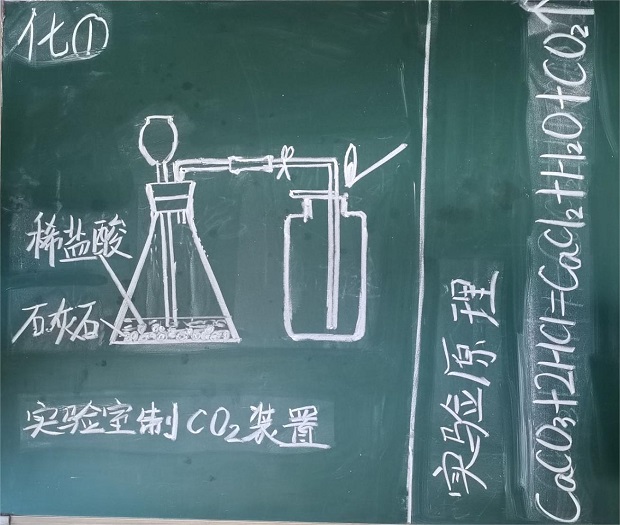 化①
稀盐酸
石灰石
实验室制CO₂装置
实验原理
CaCO₃+2HCl=CaCl₂+H₂O+CO₂↑